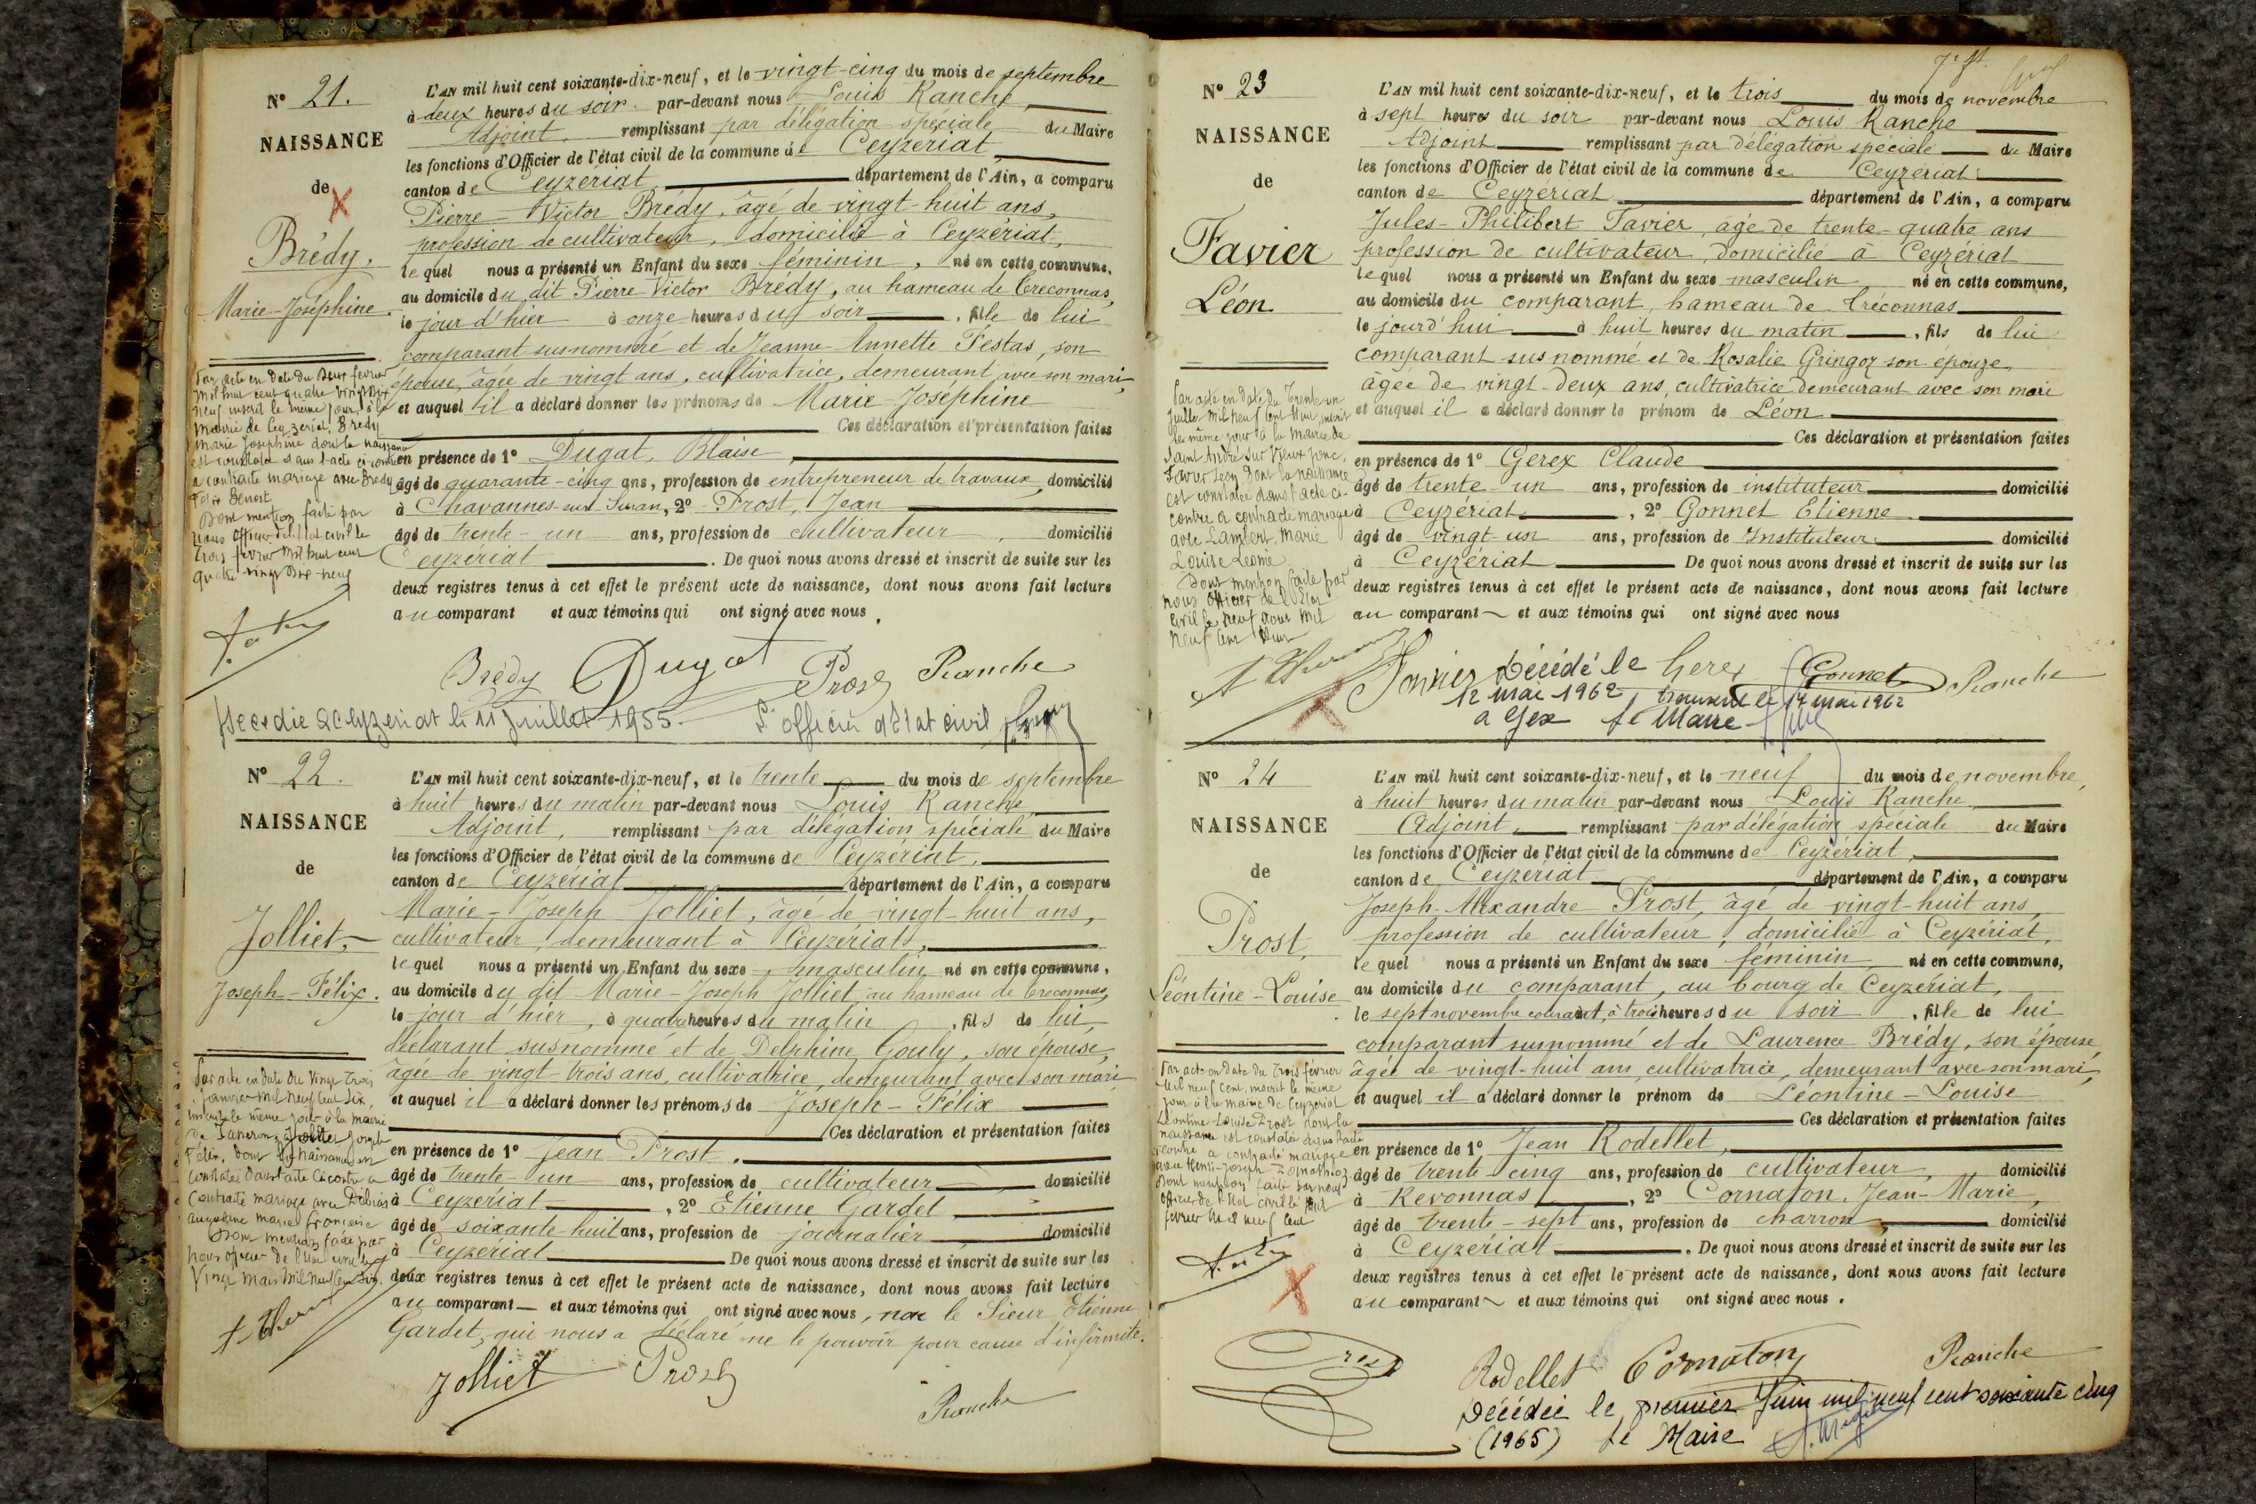 N° 21.
NAISSANCE
de
Brédy.
Marie-Joséphine.
L'AN mil huit cent soixante-dix-neuf, et le vingt-cinq du mois de septembre
à deux heures du soir par-devant nous Louis Ranche,
Adjoint remplissant par délégation spéciale du Maire
les fonctions d'Officier de l'état civil de la commune de Ceyzériat,
canton de Ceyzériat département de l'Ain, a comparu
Pierre-Victor Brédy, âgé de vingt-huit ans,
profession de cultivateur, domicilié à Ceyzériat,
lequel nous a présenté un Enfant du sexe féminin, né en cette commune,
au domicile du dit Pierre Victor Brédy, au hameau de Creconnas,
le jour d'hier à onze heures du soir, fille de lui
comparant susnommé et de Jeanne-Annette Festas, son
épouse, âgée de vingt ans, cultivatrice, demeurant avec son mari,
et auquel il a déclaré donner les prénoms de Marie-Joséphine
Ces déclaration et présentation faites
en présence de 1° Dugat, Blaise,
âgé de quarante-cinq ans, profession de entrepreneur de travaux, domicilié
à Chavannes-sur-Suran, 2° Prost, Jean
âgé de trente-un ans, profession de cultivateur, domicilié
Ceyzériat. De quoi nous avons dressé et inscrit de suite sur les
deux registres tenus à cet effet le présent acte de naissance, dont nous avons fait lecture
au comparant et aux témoins qui ont signé avec nous.
Par acte en date du deux fevrier
mil huit cent quatre vingt dix
neuf inscrit le même jour à la
mairie de Ceyzeriat, Bredy
Marie Josephine dont la naissance
est constatée dans l'acte ci-contre
a contracté mariage avec Bredy
Felix Benoit
Dont mention faite par
nous officier de l'état civil le
trois fevrier mil huit cent
quatre-vingt dix-neuf
Brédy Dugat Prost Ranche
décédée à Ceyzeriat le 11 juillet 1955. L'officier d'état civil
N° 22.
NAISSANCE
de
Jolliet,
Joseph-Félix.
L'AN mil huit cent soixante-dix-neuf, et le trente du mois de septembre
à huit heures du matin par-devant nous Louis Ranche
Adjoint, remplissant par délégation spéciale du Maire
les fonctions d'Officier de l'état civil de la commune de Ceyzériat,
canton de Ceyzériat département de l'Ain, a comparu
Marie-Joseph Jolliet, âgé de vingt-huit ans,
cultivateur, demeurant à Ceyzériat,
lequel nous a présenté un Enfant du sexe masculin né en cette commune,
au domicile du dit Marie-Joseph Jolliet, au hameau de Creconnas,
le jour d'hier, à quatre heures du matin, fils de lui
déclarant susnommé et de Delphine Gouly, son épouse,
âgée de vingt-trois ans, cultivatrice, demeurant avec son mari
et auquel il a déclaré donner les prénoms de Joseph-Félix
Ces déclaration et présentation faites
en présence de 1° Jean Prost.
âgé de trente-un ans, profession de cultivateur, domicilié
à Ceyzériat, 2° Etienne Gardet,
âgé de soixante huit ans, profession de journalier domicilié
à Ceyzériat De quoi nous avons dressé et inscrit de suite sur les
deux registres tenus à cet effet le présent acte de naissance, dont nous avons fait lecture
au comparant et aux témoins qui ont signé avec nous, non le Sieur Etienne
Gardet, qui nous a déclaré ne le pouvoir pour cause d'infirmité.
Par acte en date du vingt trois
janvier mil neuf cent six,
inscrit le même jour à la mairie
de Joseph
Félix, dont la naissance est
constatée dans l'acte ci contre a
contracté mariage avec
augustine marie francine
Dont mention faite par
nous officier de l'état civil le
vingt mars mil neuf cent six.
Jolliet Prost
Ranche
N° 23
NAISSANCE
de
Favier
Léon
L'AN mil huit cent soixante-dix-neuf, et le trois du mois de novembre
à sept heures du soir par-devant nous Louis Ranche
Adjoint remplissant par délégation spéciale du Maire
les fonctions d'Officier de l'état civil de la commune de Ceyzériat
canton de Ceyzériat département de l'Ain, a comparu
Jules-Philibert Favier, âgé de trente-quatre ans
profession de cultivateur, domicilié à Ceyzériat
lequel nous a présenté un Enfant du sexe masculin né en cette commune,
au domicile du comparant, hameau de Créconnas
le jourd'hui à huit heures du matin, fils de lui
comparant susnommé et de Rosalie Gringoz son épouze
âgée de vingt-deux ans, cultivatrice demeurant avec son mari
et auquel il a déclaré donner le prénom de Léon
Ces déclaration et présentation faites
en présence de 1° Gerex Claude
âgé de trente-un ans, profession de instituteur domicilié
à Ceyzériat, 2° Gonnet Etienne
âgé de vingt-un ans, profession de Instituteur domicilié
à Ceyzériat De quoi nous avons dressé et inscrit de suite sur les
deux registres tenus à cet effet le présent acte de naissance, dont nous avons fait lecture
au comparant et aux témoins qui ont signé avec nous
Par acte en date du trente-un
juillet mil neuf cent huit, inscrit
le même jour à la mairie de
Saint André sur Vieux Jonc,
Favier Léon dont la naissance
est constatée dans l'acte ci-
contre a contracté mariage
avec Lambert Marie
Louise Leonie
Dont mention faite par
nous officier de l'état
civil le neuf août mil
neuf cent huit
Favier Gerex Gonnet Ranche
Décédé le
12 mai 1962
à Gex Le Maire
transcrit le 17 mai 1962
N° 24
NAISSANCE
de
Prost,
Léontine-Louise
L'AN mil huit cent soixante-dix-neuf, et le neuf du mois de novembre,
à huit heures du matin par-devant nous Louis Ranche,
Adjoint, remplissant par délégation spéciale du Maire
les fonctions d'Officier de l'état civil de la commune de Ceyzériat,
canton de Ceyzériat département de l'Ain, a comparu
Joseph-Alexandre Prost, âgé de vingt-huit ans,
profession de cultivateur, domicilié à Ceyzériat,
lequel nous a présenté un Enfant du sexe féminin né en cette commune,
au domicile du comparant, au bourg de Ceyzériat,
le sept novembre courant, à trois heures du soir, fille de lui
comparant susnommé et de Laurence Brédy, son épouse,
âgée de vingt-huit ans, cultivatrice, demeurant avec son mari,
et auquel il a déclaré donner le prénom de Léontine-Louise
Ces déclaration et présentation faites
en présence de 1° Jean Rodellet,
âgé de trente cinq ans, profession de cultivateur, domicilié
à Revonnas, 2° Cornaton, Jean-Marie,
âgé de trente-sept ans, profession de charron, domicilié
à Ceyzériat. De quoi nous avons dressé et inscrit de suite sur les
deux registres tenus à cet effet le présent acte de naissance, dont nous avons fait lecture
au comparant et aux témoins qui ont signé avec nous.
Par acte en date du trois février
mil neuf cent, inscrit le même
jour à la mairie de Ceyzeriat
Léontine-Louise Prost dont la
naissance est constatée dans l'acte
ci contre a contracté mariage
avec Henri-Joseph
Dont mention faite par nous
officier de l'état civil le huit
fevrier mil neuf cent
Prost Rodellet Cornaton Ranche
Décédée le premier Juin mil neuf cent soixante cinq
(1965) Le Maire